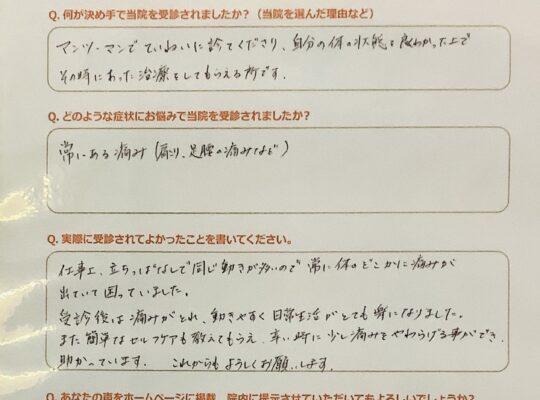 Q. 何が決め手で当院を受診されましたか？（当院を選んだ理由など）
マンツーマンでていねいに診てくださり、自分の体の状態を良くわかった上で
その時にあった治療をしてもらえる所です。
Q. どのような症状にお悩みで当院を受診されましたか？
常にある痛み（肩こり、足腰の痛みなど）
Q. 実際に受診されてよかったことを書いてください。
仕事上、立ちっぱなしで同じ動きが多いので 常に体のどこかに痛みが
出ていて困っていました。
受診後は痛みがとれ、動きやすく日常生活がとても楽になりました。
また簡単なセルフケアも教えてもらえ、辛い時に少し痛みをやわらげる事ができ、
助かっています。 これからもよろしくお願いします。
Q. あなたの声をホームページに掲載、院内に提示させていただいてもよろしいでしょうか？